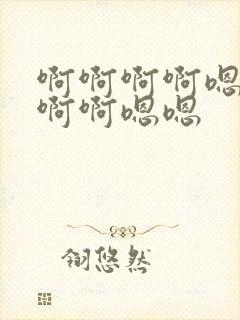 啊啊啊啊嗯
啊啊嗯嗯
翎悠然